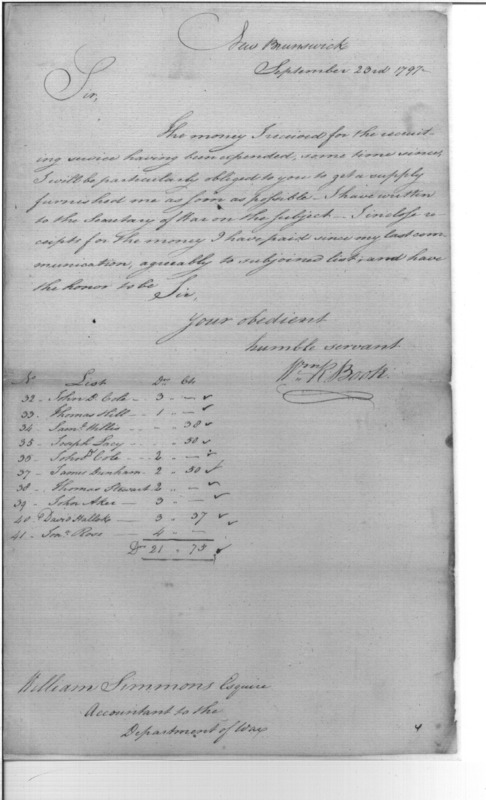 New Brunswick
September 23rd 1797
Sir,
The money I received for the recruit-
ing service having been expended, some time since,
I will be particularly obliged to you to get a supply
furnished me as soon as possible - I have written
to the Secretary of War on the subject - I inclose re
ceipts for the money I have paid since my last com-
munication, agreeably to subjoined list; and have
the honor to be Sir,
Your obedient
humble servant
Wm R. Boote
No List Drs Cts
32 - John D. Cole - 3 - —
33 - Thomas Hill - 1 - —
34 Saml. - - 38
35 - Joseph Lacy - 50
36 - John D. Cole - 2 - —
37 - James Dunham - 2 - 50
38 - Thomas Stewart 2 - —
39 - John Aker — 3 - —
40 David — 3 - 37
41 - Jona. Ross — 4 - —
Drs 21 - 75
William Simmons Esquire
Accountant to the
Department of War
4